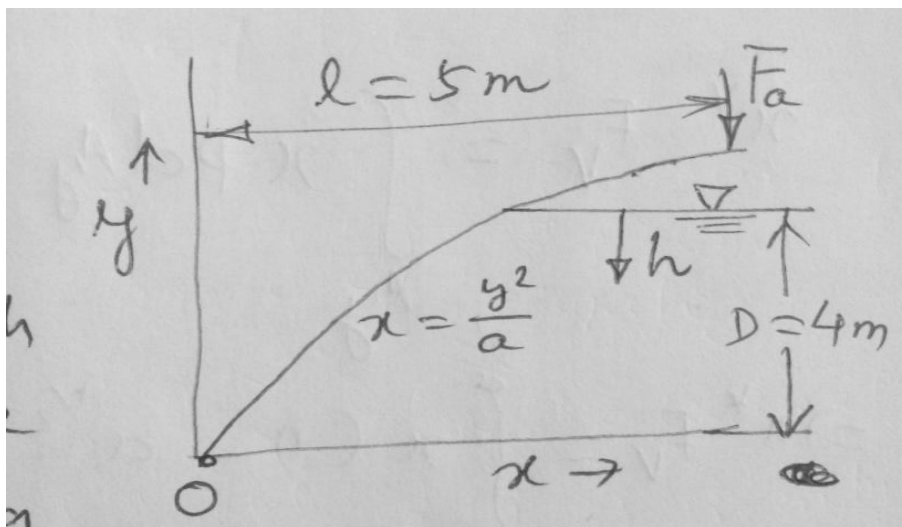 l = 5m
F̅a
y
h
x = y²/a
D = 4m
O
x →